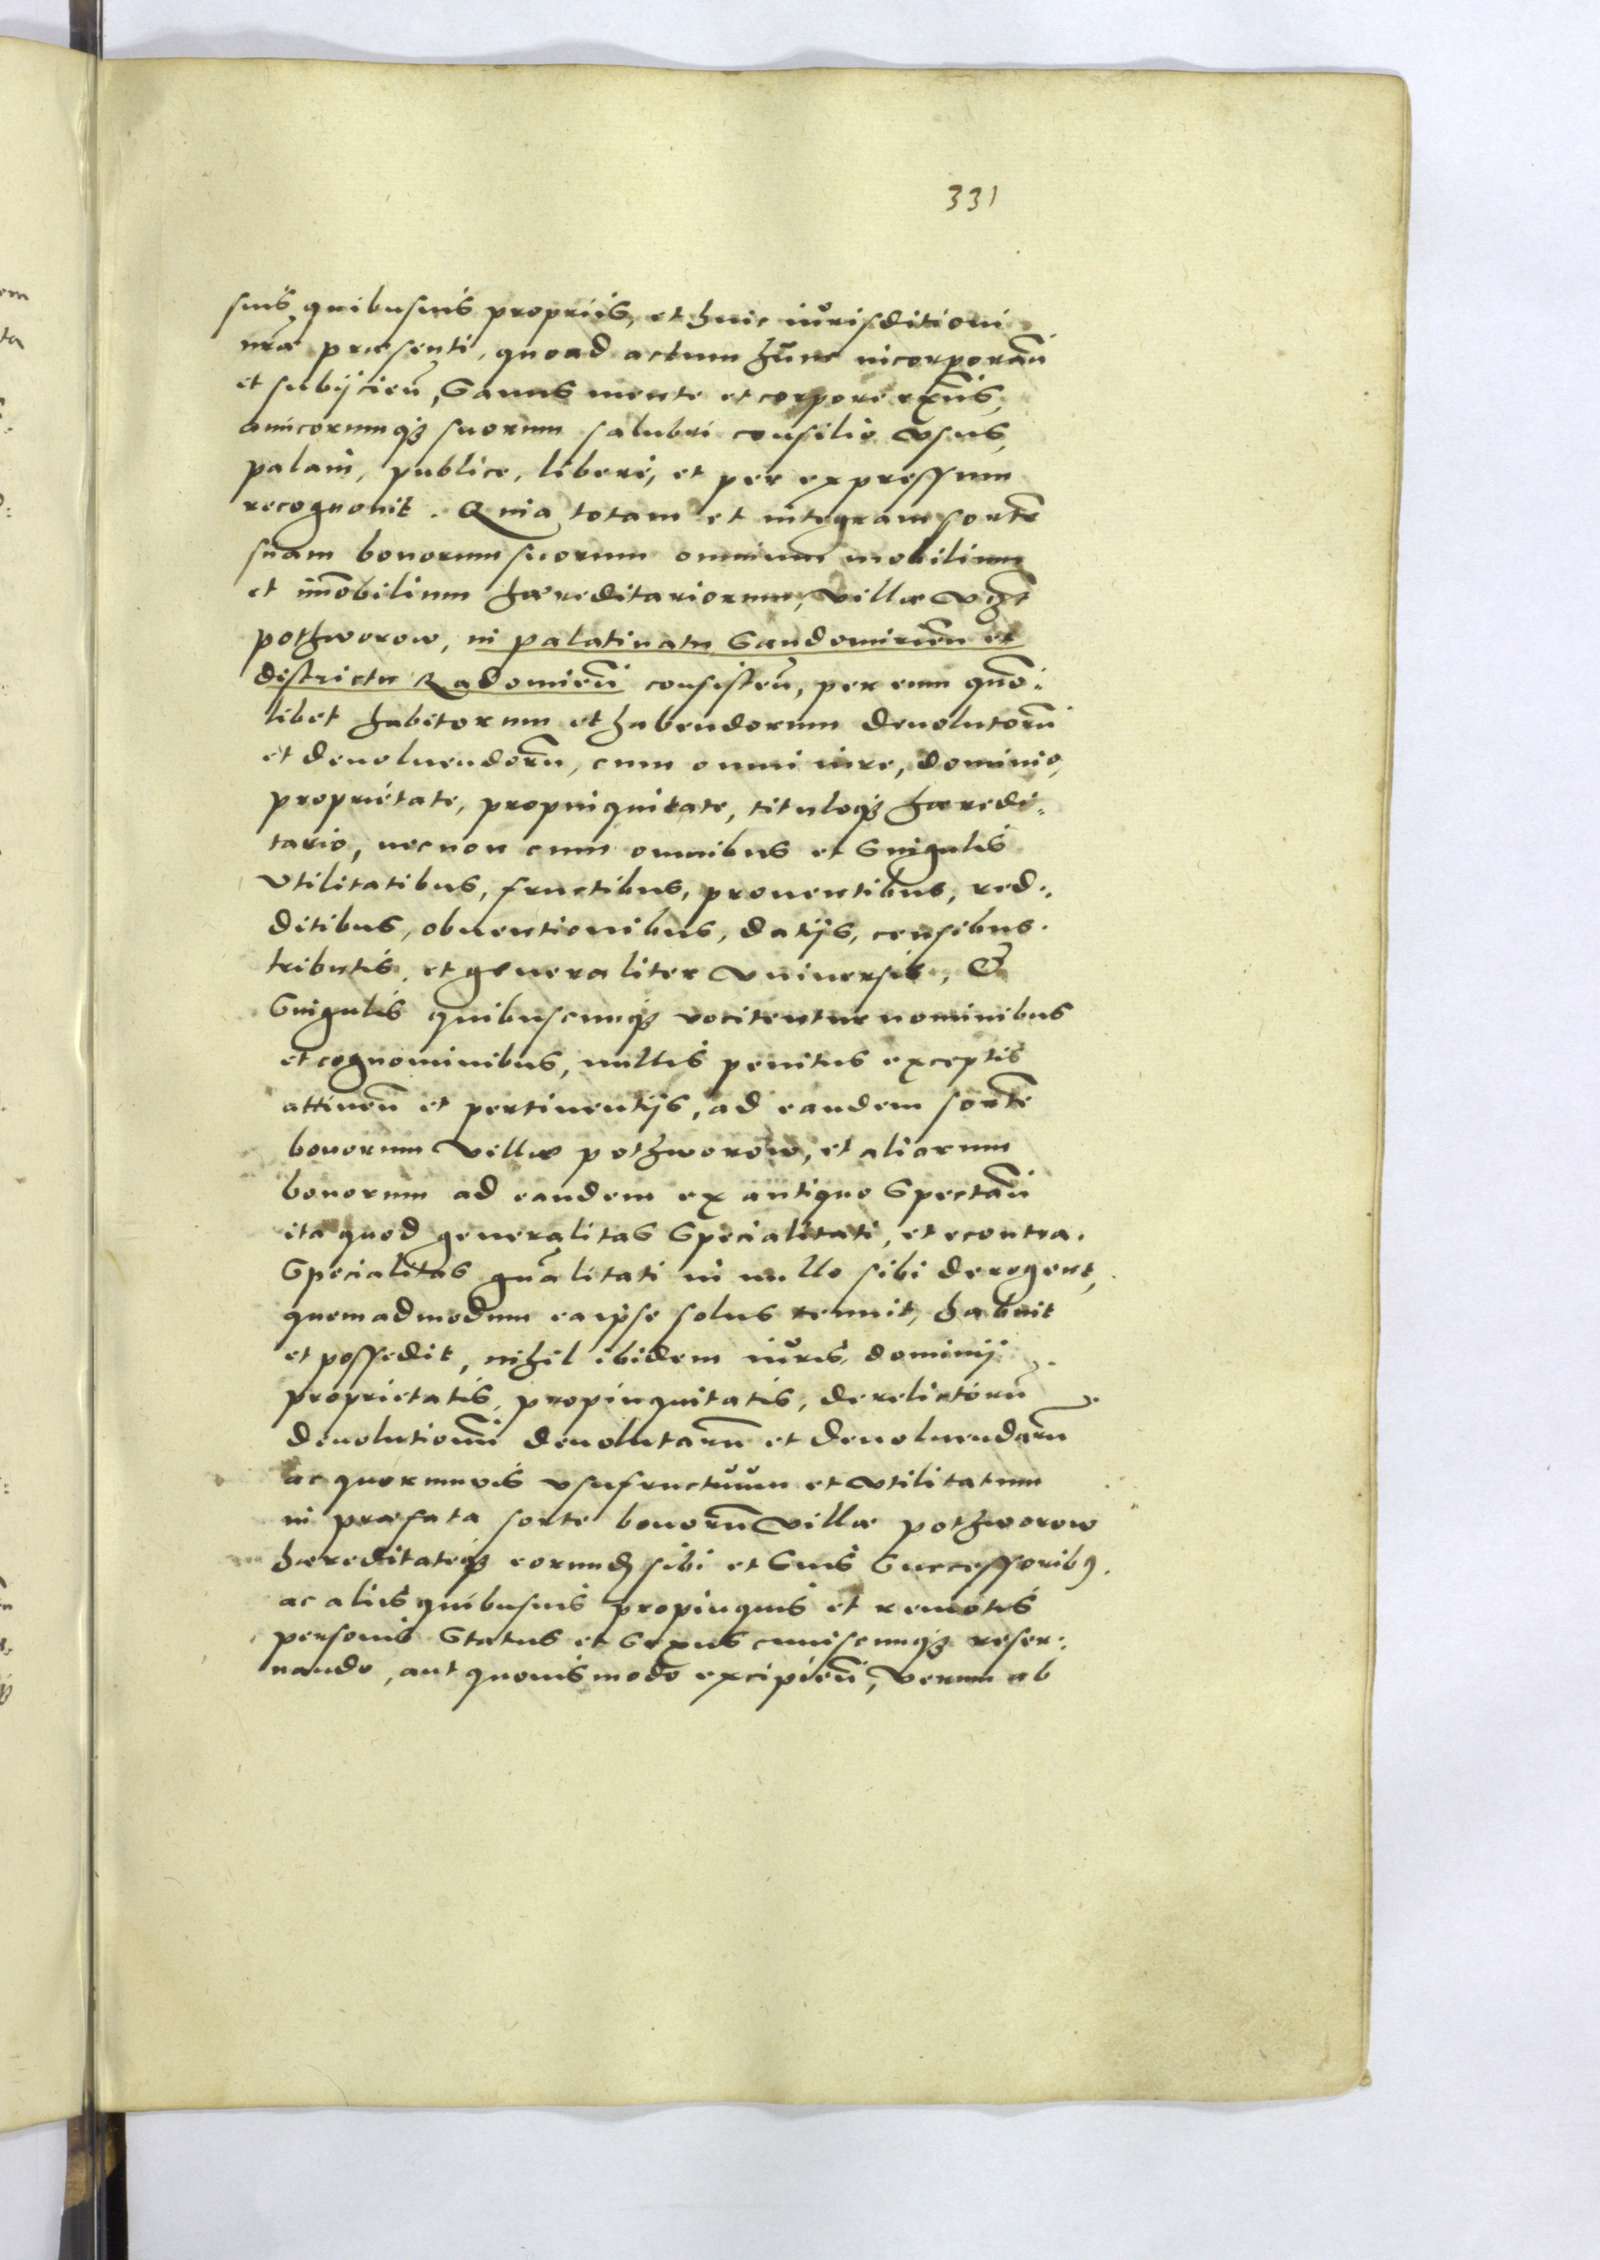 331
suis quibusuis propriis, et huic iurisditioni
nr̃æ præsenti, quoad actum hunc incorporan̄
et subijcien̄, Sanus mente et corpore exn̄s,
amicorumq3 suorum salubri consilio vsus,
palam, publice, libere, et per expressum
recognouit. Quia totam et integram sortē
suam bonorum suorum omnium mobilium
et im̄obilium hæreditariorum, villæ vz̄t
pothworow, in palatinatu Sandomirien̄ et
districtu Radomien̄ consisten̄, per eum quō:
libet habitorum et habendorum deuolutorū
et deuoluendorū, cum omni iure, dominio,
proprietate, propinquitate, tituloq3 hæredi:
tario, necnon cum omnibus et Singulis
vtilitatibus, fructibus, prouentibus, red:
ditibus, obuentionibus, datijs, censibus.
tributis, et generaliter vniuersis, &
Singulis quibuscumq3 vocitentur nominibus
et cognominibus, nullis penitus exceptis
attinen̄ et pertinentijs, ad eandem sortē
bonorum villæ pothworow, et aliorum
bonorum ad eandem ex antiquo Spectan̄
ita quod generalitas Specialitati, et econtra.
Specialitas gn̄alitati in nullo sibi derogent,
quemadmodum ea ipse solus tenuit, habuit
et possedit, nihil ibidem iuris, dominij
proprietatis, propinquitatis, derelictorū
deuolutionū deuolutarū et deuoluendarū
ac quorumuis vsufructuum et vtilitatum
in præfata sorte bonorū villæ pothworow
hæreditateq3 eorund̄ sibi et Suis Successorib9.
ac aliis quibusuis propinquis et remotis
personis Status et Sexus cuiuscumq3 reser:
uando, aut quouismodo excipien̄, verum ab